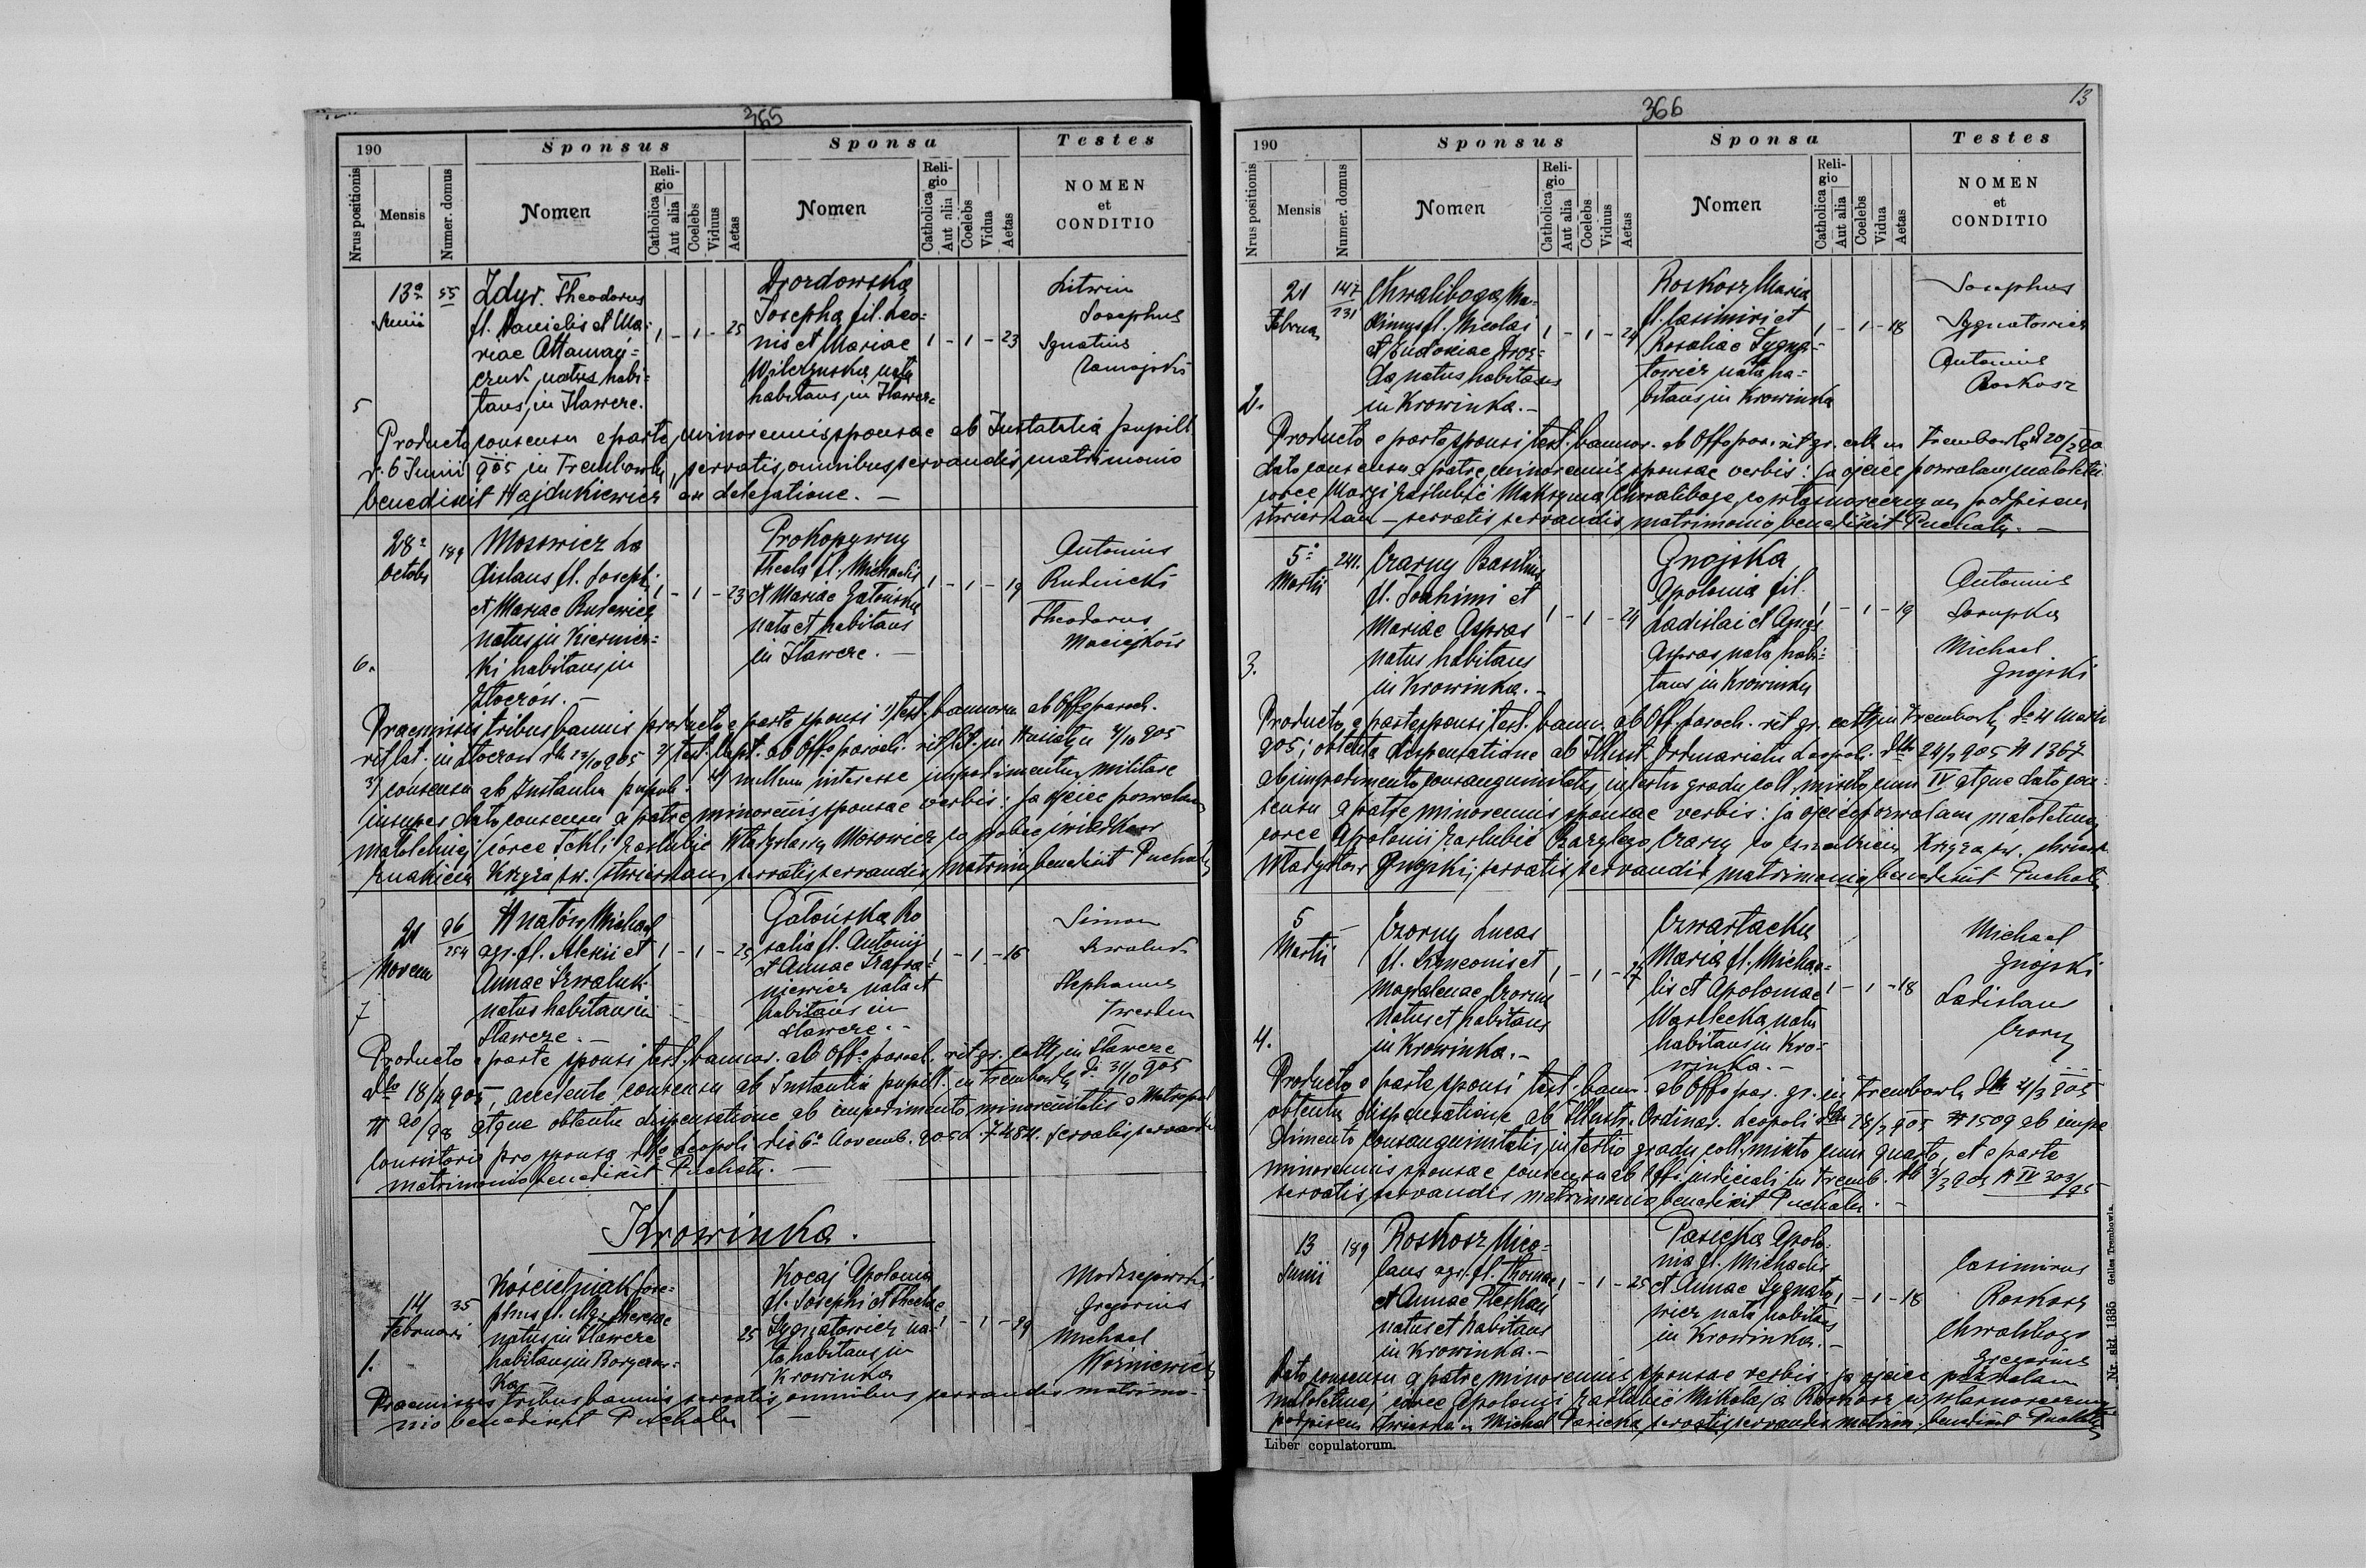 365
190
Sponsus
Sponsa
Testes
Nrus positionis
Mensis
Numer. domus
Nomen
Religio
Catholica
Aut alia
Coelebs
Viduus
Aetas
Nomen
Religio
Catholica
Aut alia
Coelebs
Vidua
Aetas
NOMEN
et
CONDITIO
5
13a
Junii
55
Zdyr. Theodorus
fl. Danielis et Ma-
riae Attaman-
czuk, natus habi-
tans in Iławcze.
1 - 1 - 25
Drozdowska
Josepha fil. Leo-
nis et Mariae
Wilczyńska nata
habitans in Iławcze
1 - 1 - 23
Litwin
Josephus
Ignatius
Zamojski
Producto consensu e parte minorennis sponsae ab Instantia pupill
d. 6 Junii 905 in Trembowla, servatis omnibus servandis matrimonio
benedixit Hajdukiewicz ex delegatione. -
6.
28a
Octobr
189
Mosowicz La
dislaus fl. Josephi
et Mariae Rusewicz
natus in Kiernic-
ki habitans in
Złoczów. -
1 - 1 - 23
Prokopywny
Thecla fl. Michaelis
et Mariae Gatońska
nata et habitans
in Iławcze. -
1 - 1 - 19
Antonius
Rudnicki
Theodorus
Maciejków
Praemissis tribus bannis producto e parte sponsi 1) test. bannorum ab Offo paroch.
rit lat. in Złoczow dto 23/10 905 2) test bapt. ab Offo paroch. rit lat. in Husiatyn 4/10 905
3) consensu ab Instantia pupill. 4) nullum interesse impedimentum militare
insuper dato consensu a patre minorennis sponsae verbis: Ja ojciec pozwalam
małoletniej córce Tekli zaślubić Władysława Mosowicz co pobec świadkow
znakiem Krzyża św. stwierdzam servatis servandis matrimo benedixit Puchała
7
21
Novem
96
254
Hnatów Michael
agr. fl. Alexii et
Annae Szwaluk
natus habitans in
Iławcze. -
1 - 1 - 25
Gatońska Ro
salia fl. Antonii
et Annae
niewicz nata et
habitans in
Iławcze. -
1 - 1 - 16
Simon
Szwaluk
Stephanus
Twerdun
Producto e parte sponsi test. bannor. ab Offo paroch. rit gr. cath. in Iławcze
dto 18/11 905, accedente consensu ab Instantia pupill. in Trembowla d. 31/10 905
N 90/98 atque obtenta dispensatione ab impedimento minorennitatis a Metropol
Consistorio pro sponsa dto Leopoli die 6a Novemb. 905 L. 7484. servatis servandis
matrimonio benedixit Puchała. -
Krowinka.
1.
14
Februari
35
Kościelniak Jose-
phus fl. Theresae
natus in Iławcze
habitans in Borycow-
ka -
25
Kocaj Apolonia
fl. Josephi et Theclae
Sygnatowicz na-
ta habitans in
Krowinka
1 - 1 - 29
Modzejowski
Gregorius
Michael
Woźniewicz
Praemissis tribus bannis servatis omnibus servandis matrimo-
nio benedixit Puchała -
366
13
190
Sponsus
Sponsa
Testes
Nrus positionis
Mensis
Numer. domus
Nomen
Religio
Catholica
Aut alia
Coelebs
Viduus
Aetas
Nomen
Religio
Catholica
Aut alia
Coelebs
Vidua
Aetas
NOMEN
et
CONDITIO
2.
21
Februa
147
231
Chwaliboga Ma-
ximus fl. Nicolai
et Eudoxiae Droz-
da, natus habitans
in Krowinka. -
1 - 1 - 24
Roskosz Maria
fl. Casimiri et
Rosaliae Sygna-
towicz nata ha-
bitans in Krowinka
1 - 1 - 18
Josephus
Sygnatowicz
Antonius
Roskosz
Producto e parte sponsi test. bannor. ab Offo par. rit gr. cath in Trembowla d 20/2 90
dato consensu a patre minorennis sponsae verbis: Ja ojciec pozwalam małoletni
corce Maryi zaślubić Maksyma Chwaliboga, co własnoręcznym podpisem
stwierdzam - servatis servandis matrimonio benedixit Puchała. -
3.
5o
Martii
241.
Czarny Basilius
fl. Joachimi et
Mariae Aspras
natus habitans
in Krowinka. -
1 - 1 - 24
Gnojska
Apolonia fil.
Ladislai et Agnes
Aspras nata habi-
tans in Krowinka
1 - 1 - 19
Antonius
Michael
Gnojski
Producto e parte sponsi test. bann. ab Off. paroch. rit gr. cath in Trembowla do 4 Martii
905; obtenta dispensatione ab Illust. Ordinariatu Leopoli dto 24/2 905 N 1367
ab impedimento consanguinitatis in tertio gradu coll. mixto cum IV atque dato con-
sensu a patre minorennis sponsae verbis: ja ojciec pozwalam małoletniej
corce Apolonii zaślubić Bazylego Czarny co znakiem Krzyża św. stwierdz
Władysław Gnojski; servatis servandis matrimonio benedixit Puchała
4.
5
Martii
Czorny Lucas
fl. Simeonis et
Magdalenae Czorny
natus et habitans
in Krowinka. -
Czwartacka
Maria fl. Michae-
lis et Apoloniae
Wasilecka nata
habitans in Kro-
winka. -
1 - 1 - 18
Michael
Gnojski
Ladislaus
Czorny
Producto e parte sponsi test. bann. ab Offo par. gr. in Trembowla dto 4/3 905
obtenta dispensatione ab Illustr. Ordinar. Leopoli dto 28/2 905 N 1509 ab impe
dimento consanguinitatis in tertio gradu coll. mixto cum quarto, et e parte
minorennis sponsae consensu ab Offo judiciali in Tremb. dto 3/3 905 N IV 303/95
servatis servandis matrimonio benedixit Puchała. -
13
Junii
189
Roskosz Nico-
laus agr. fl. Thomae
et Annae Pleskan
natus et habitans
in Krowinka. -
1 - 1 - 25
Pasicka Apolo-
nia fl. Michaelis
et Annae Sygnato
wicz nata habitans
in Krowinka. -
1 - 1 - 18
Casimirus
Roskosz
Chwaliboga
Gregorius
Dato consensu a patre minorennis sponsae verbis: ja ojciec pozwalam
małoletniej córce Apolonii zaślubić Mikołaja Roskosz co własnoręcznym
podpisem stwierdzam Michał Pasicka servatis servandis matrim. benedixit Puchała
Liber copulatorum.
Nr. skł. 1385 Gelles Trembowla.